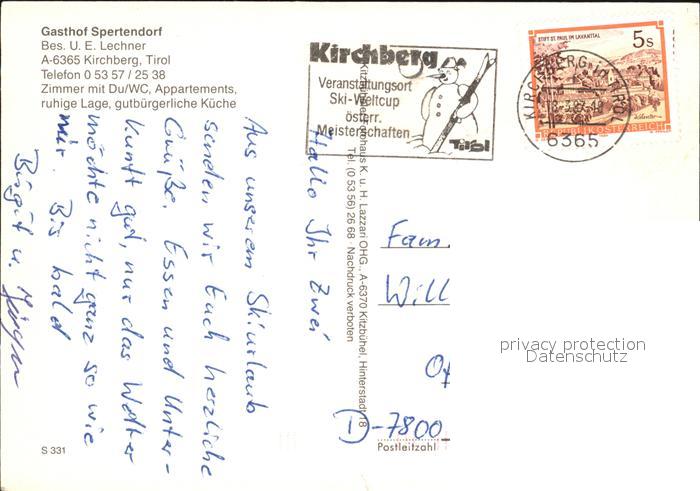 Gasthof Spertendorf
Bes. U. E. Lechner
A-6365 Kirchberg, Tirol
Telefon 0 53 57 / 25 38
Zimmer mit Du/WC, Appartements,
ruhige Lage, gutbürgerliche Küche
Kirchberg
Veranstaltungsort
Ski-Weltcup
österr.
Meisterschaften
Tirol
STIFT ST. PAUL IM LAVANTTAL
5s
REPUBLIK ÖSTERREICH
KIRCHBERG in TIROL
6365
Hallo Ihr Zwei
Aus unserem Skiurlaub
senden wir Euch herzliche
Grüße. Essen und Unter-
kunft gut, nur das Wetter
möchte nicht ganz so wie
wir. Bis bald
Birgit u. Jürgen
K. u. H. Lazzari OHG., A-6370 Kitzbühel, Hinterstadt 18
Tel. (0 53 56) 26 68 Nachdruck verboten
Fam.
Will
D-7800
Postleitzahl
privacy protection
Datenschutz
S 331